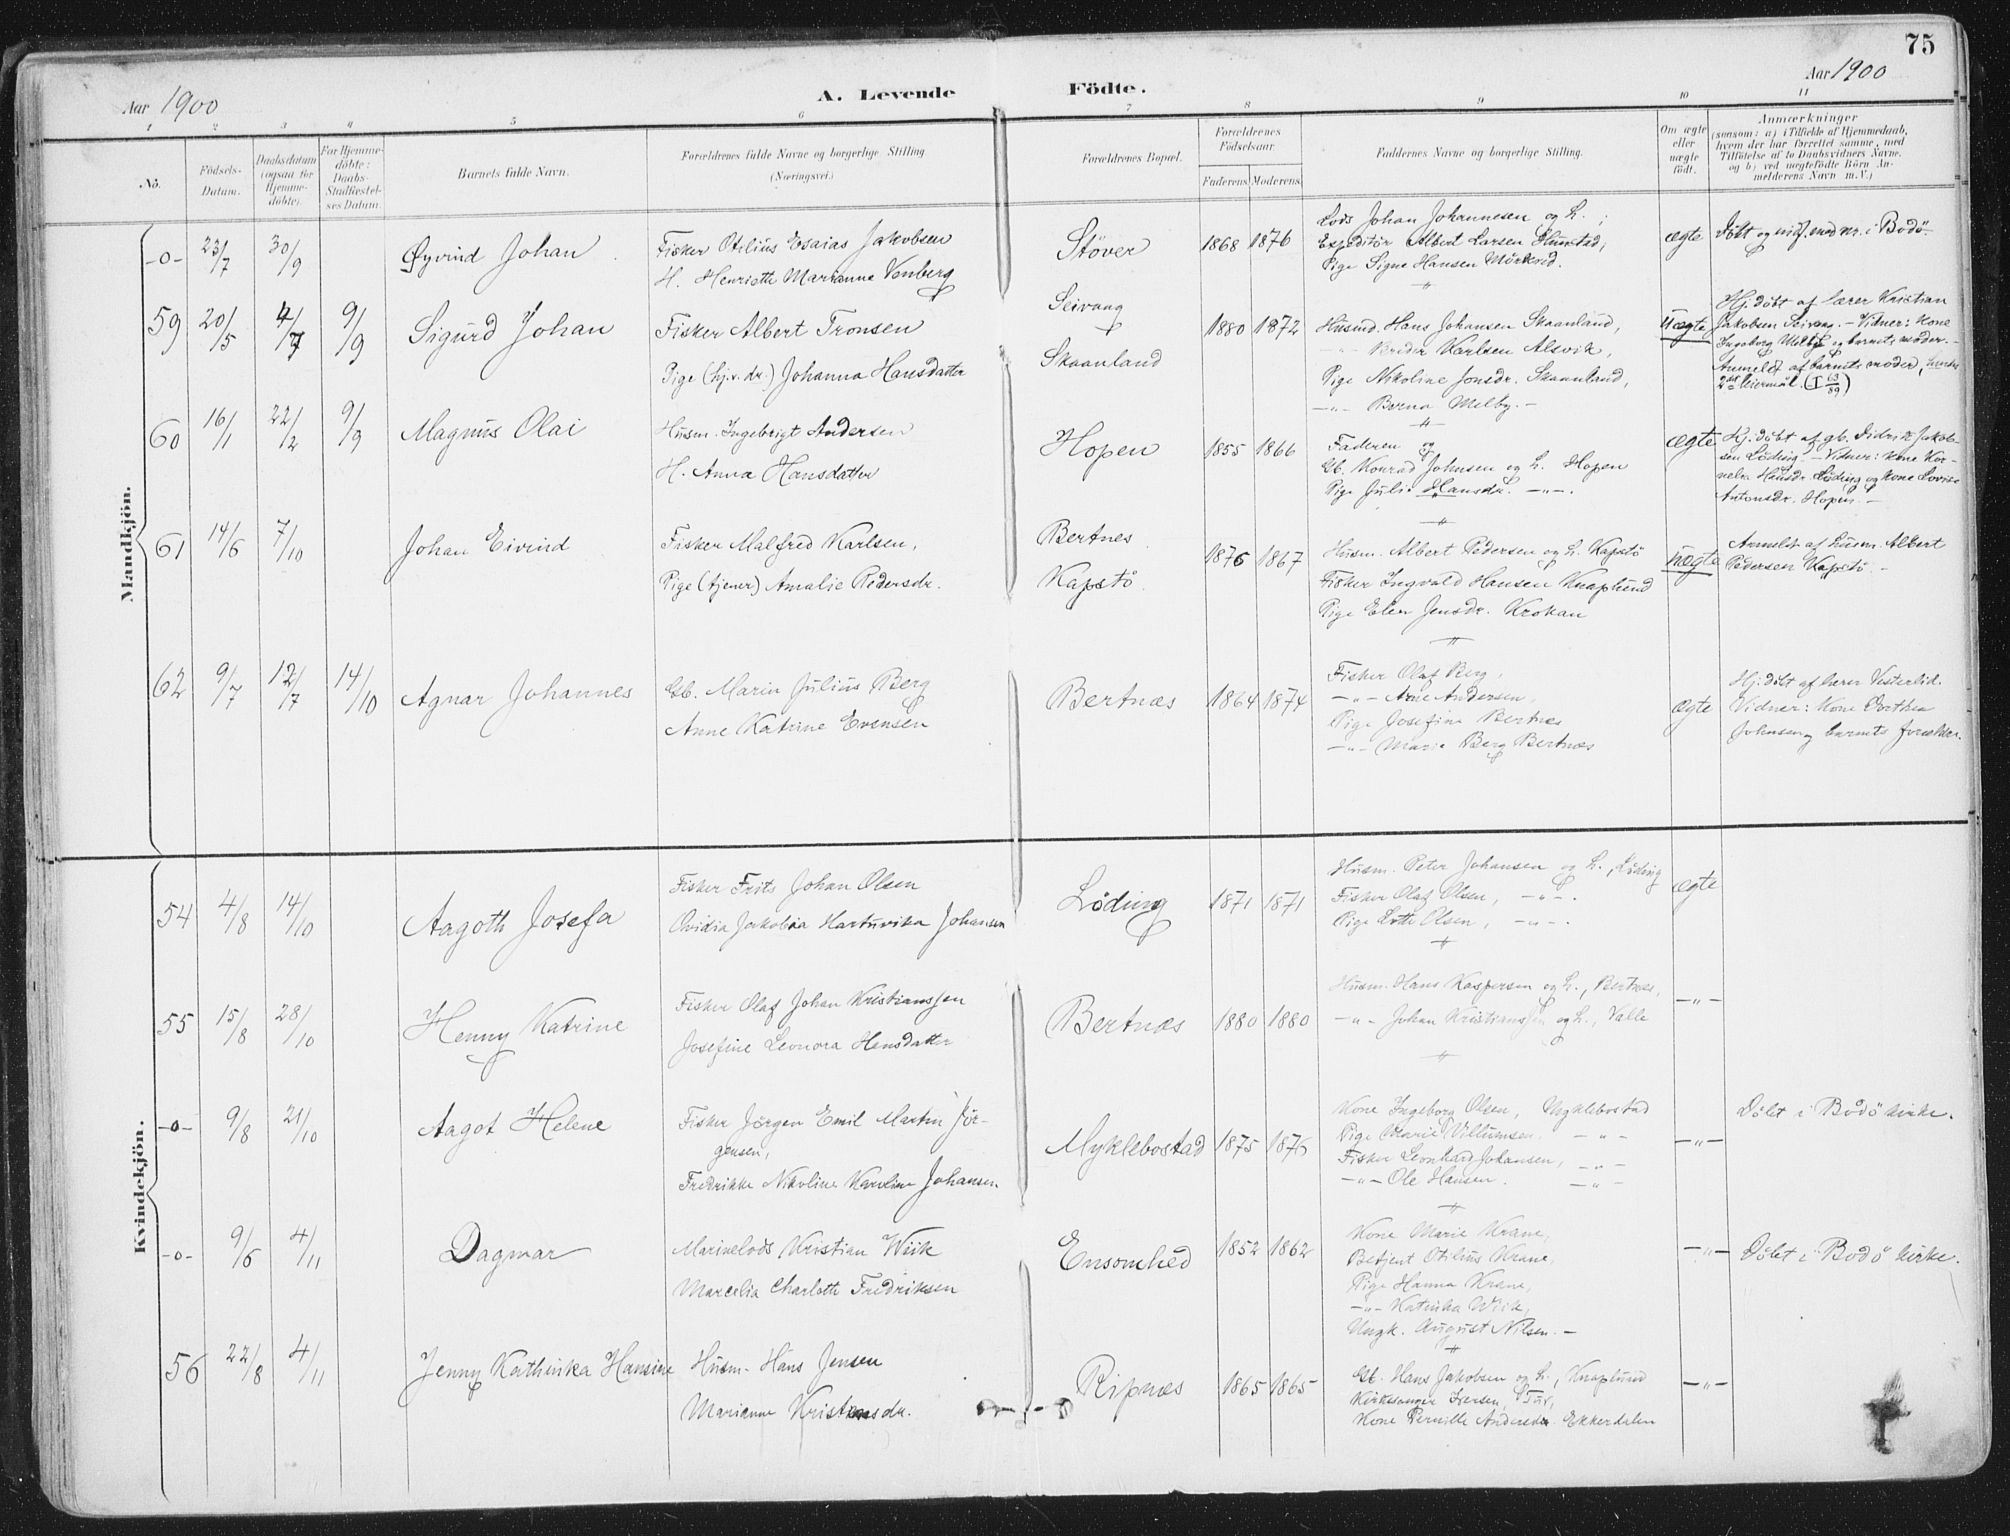 75
Aar 1900
A. Levende Födte.
Aar 1900
1 2 3 4 5 6 7 8 9 10 11
No.
Födsels-Datum.
Daabsdatum (ogsaa for Hjemme-döbte).
For Hjemme-döbte: Daabs-Stadfæstel-ses Datum.
Barnets fulde Navn.
Forældrenes fulde Navne og borgerlige Stilling
(Næringsvei.)
Forældrenes Bopæl.
Forældrenes Födselsaar
Faderens
Moderens
Faddernes Navne og borgerlige Stilling.
Om ægte eller uægte födt.
Anmærkninger
(saasom: a) i Tilfælde af Hjemmedaab,
hvem der har forrettet samme, med
Tilföielse af to Daabsvidners Navne.
og b) ved uægtefödte Börn An-
melderens Navn m. V.)
Mandkjön.
-0- 23/7 30/9 Øyvind Johan
Fisker Otilius Esaias Jakobsen
H. Henriette Marianne Venberg
Støver 1868 1876
Lods Johan Johannesen og h. ;
Expeditör Albert Larsen Hunstad,
Pige Signe Hansen Mörkved.
ægte
Döbt og indf. med nr. i Bodö
59 20/5 4/7 9/9 Sigurd Johan
Fisker Albert Tronsen
Pige (hj.v. dr.) Johanna Hansdatter
Seivaag
Skaanland
1880 1872
Husmd. Hans Johansen Skaanland,
-"- Karlsen Alsvik,
Pige Nikoline Jonsdr. Skaanland,
-"- Berna Melby. -
Uægte
Hj. döbt af lærer Kristian
Jakobsen Seivaag. - Vidner: Kone
Ingeborg Melby og barnets moder. -
Anmeldt af barnets moder, hendes
2det leiermål.
60 16/1 22/2 9/9 Magnus Olai
Husm. Ingebrigt Andersen
H. Anna Hansdatter
Hopen 1855 1866
Faderen og
Gb. Konrad Johnsen og h. Hopen
Pige Julie Hansdr. -"-.
ægte
Hj. döbt af gb. Didrik Jakob-
sen Löding - Vidner: kone Kor-
nelia Hansdr. Löding og kone Lovise
Antonsdr. Hopen. -
61 14/6 7/10 Johan Eivind
Fisker Malfred Karlsen,
Pige (tjener) Amalie Pedersdr.
Bertnes
Kapstö.
1876 1867
Husm. Albert Pedersen og h. Kapstö
Fisker Ingvald Hansen Knaplund
Pige Elen Jensdr. Krokan
uægte
Anmeldt af husm. Albert
Pedersen Kapstö. -
62 9/7 12/7 14/10 Agnar Johannes
Gb. Marin Julius Berg
Anne Katrine Evensen
Bertnæs 1864 1874
Fisker Olaf Berg,
-"- Arne Andersen,
Pige Josefine Bertnæs
-"- Marie Berg Bertnæs
ægte
Hj. döbt af lærer Vesterlid.
Vidner: Kone Dorthea
Johnsen og barnets forældre.
Kvindekjön.
54 4/8 14/10 Aagoth Josefa
Fisker Frits Johan Olsen
Ovidia Jakobia Hartuvika Johansen
Löding 1871 1871
Husm. Peter Johansen og h., Löding
Fisker Olaf Olsen, -"-.
Pige Lotte Olsen, -"-.
ægte
55 15/8 28/10 Henny Katrine
Fisker Olaf Johan Kristianssen
Josefine Leonora Hansdatter
Bertnæs 1880 1880
Husm. Hans Kaspersen og h., Bertnæs,
-"- Johan Kristianssen og h., Valle
-"-
-0- 9/8 21/10 Aagot Helene
Fisker Jörgen Emil Martin Jör-
gensen,
Fredrikke Nikoline Karoline Johansen
Myklebostad 1875 1876
Kone Ingeborg Olsen, Myklebostad
Pige Marie Villumsen. -"-
Fisker Leonhard Johansen, -"-
-"- Ole Hansen. -"-
-"-
Döbt i Bodö kirke.
-0- 9/6 4/11 Dagmar
Marinelods Kristian Wiik
Marcelia Charlotte Fredriksen
Ensomhed 1852 1862
Kone Marie Krane,
Betjent Otilius Krane,
Pige Hanna Krane,
-"- Katinka Wiik,
Ungk. August Nilsen. -
-"-
Döbt i Bodö kirke.
56 22/8 4/11 Jenny Kathinka Hansine
Husm. Hans Jensen
Marianne Kristensdr.
Ripnæs 1865 1865
Gb. Hans Jakobsen og h., Knaplund
Kirkesanger Iversen, Tuv,
Kone Pernille Andersdr. Ekkerdalen
-"-